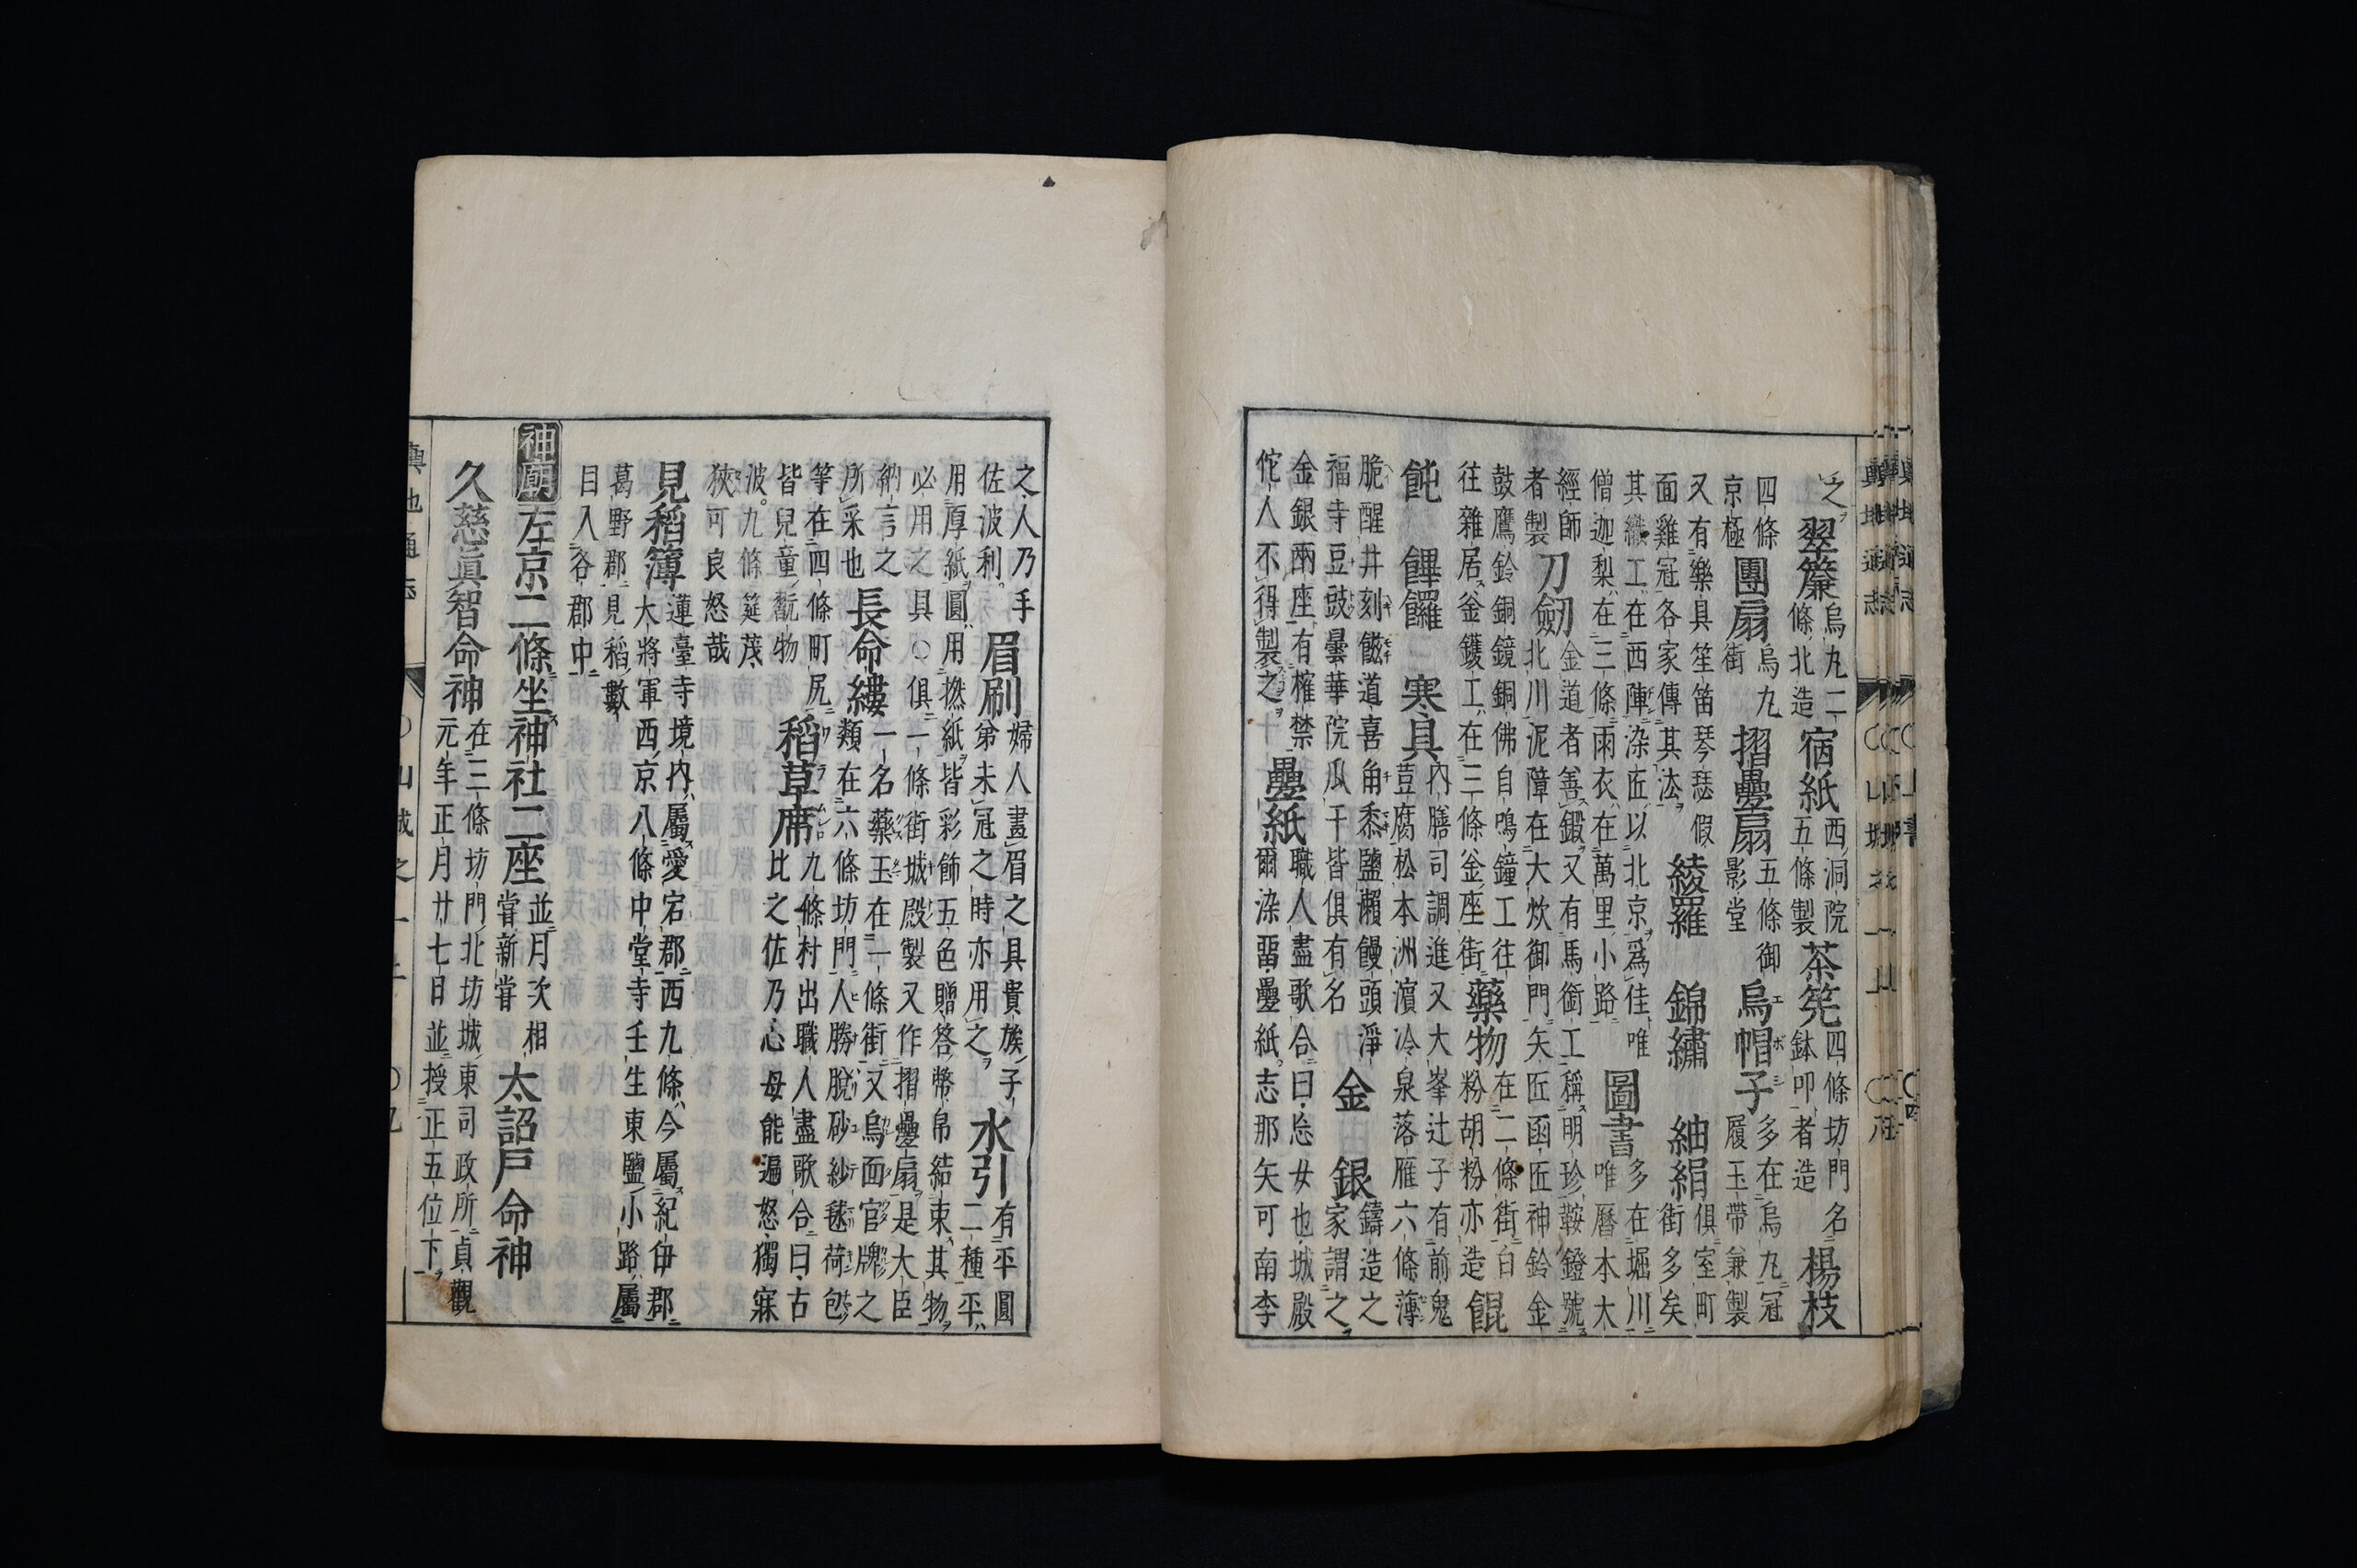 之翠簾烏丸二條北造宿紙西洞院五條製茶筅四條坊門名鉢叩者造楊枝
四條京極團扇烏丸街摺疊扇五條御影堂烏帽子多在烏丸冠履玉帶兼製
又有樂具笙笛琴瑟假面雞冠各家傳其法綾羅錦繡紬絹俱室町街多矣
其織工在西陣染匠以北京爲佳唯僧迦梨在三條雨衣在萬里小路圖書多在堀川唯曆本大
經師者製刀劒金道者善鍛又有馬銜工稱明珍鞍鐙號北川泥障在大炊御門矢匠函匠神鈴金
鼓鷹鈴銅鏡銅佛自鳴鐘工往往雜居釜鑊工在三條釜座街藥物在二條街白粉胡粉亦造餛
飩饆饠寒具內膳司調進又大峯辻子有前鬼荳腐松本洲濵冷泉落雁六條薄
脆醒井刻道喜角黍鹽瀨饅頭淨福寺豆豉曇華院瓜干皆俱有名金銀鑄造之家謂之
金銀兩座有榷禁佗人不得製之疊紙職人盡歌合曰忩女也城殿爾染畱疊紙志那矢可南李
之人乃手佐波利眉刷婦人畫眉之具貴族子弟未冠之時亦用之水引有平圓二種平
用厚紙圓用撚紙皆彩飾五色贈答幣帛結束其物必用之具○俱一條街城殿製又作摺疊扇是大臣
納言之所采也長命縷一名藥玉在一條街又烏面官牌之類在六條坊門人勝脫砂紗毬荷包
等在四條町尻皆兒童翫物稻草席九條村出職人盡歌合曰古比之佐乃心母能遍怒獨寐
波九條筵茂狹可良怒哉
見稻簿蓮臺寺境內屬愛宕郡西九條今屬紀伊郡大將軍西京八條中堂寺壬生東鹽小路屬
葛野郡見稻數目入各郡中
神廟左京二條坐神社二座並月次相甞新甞太詔戶命神
久慈眞智命神在三條坊門北坊城東司政所貞觀元年正月廿七日並授正五位下